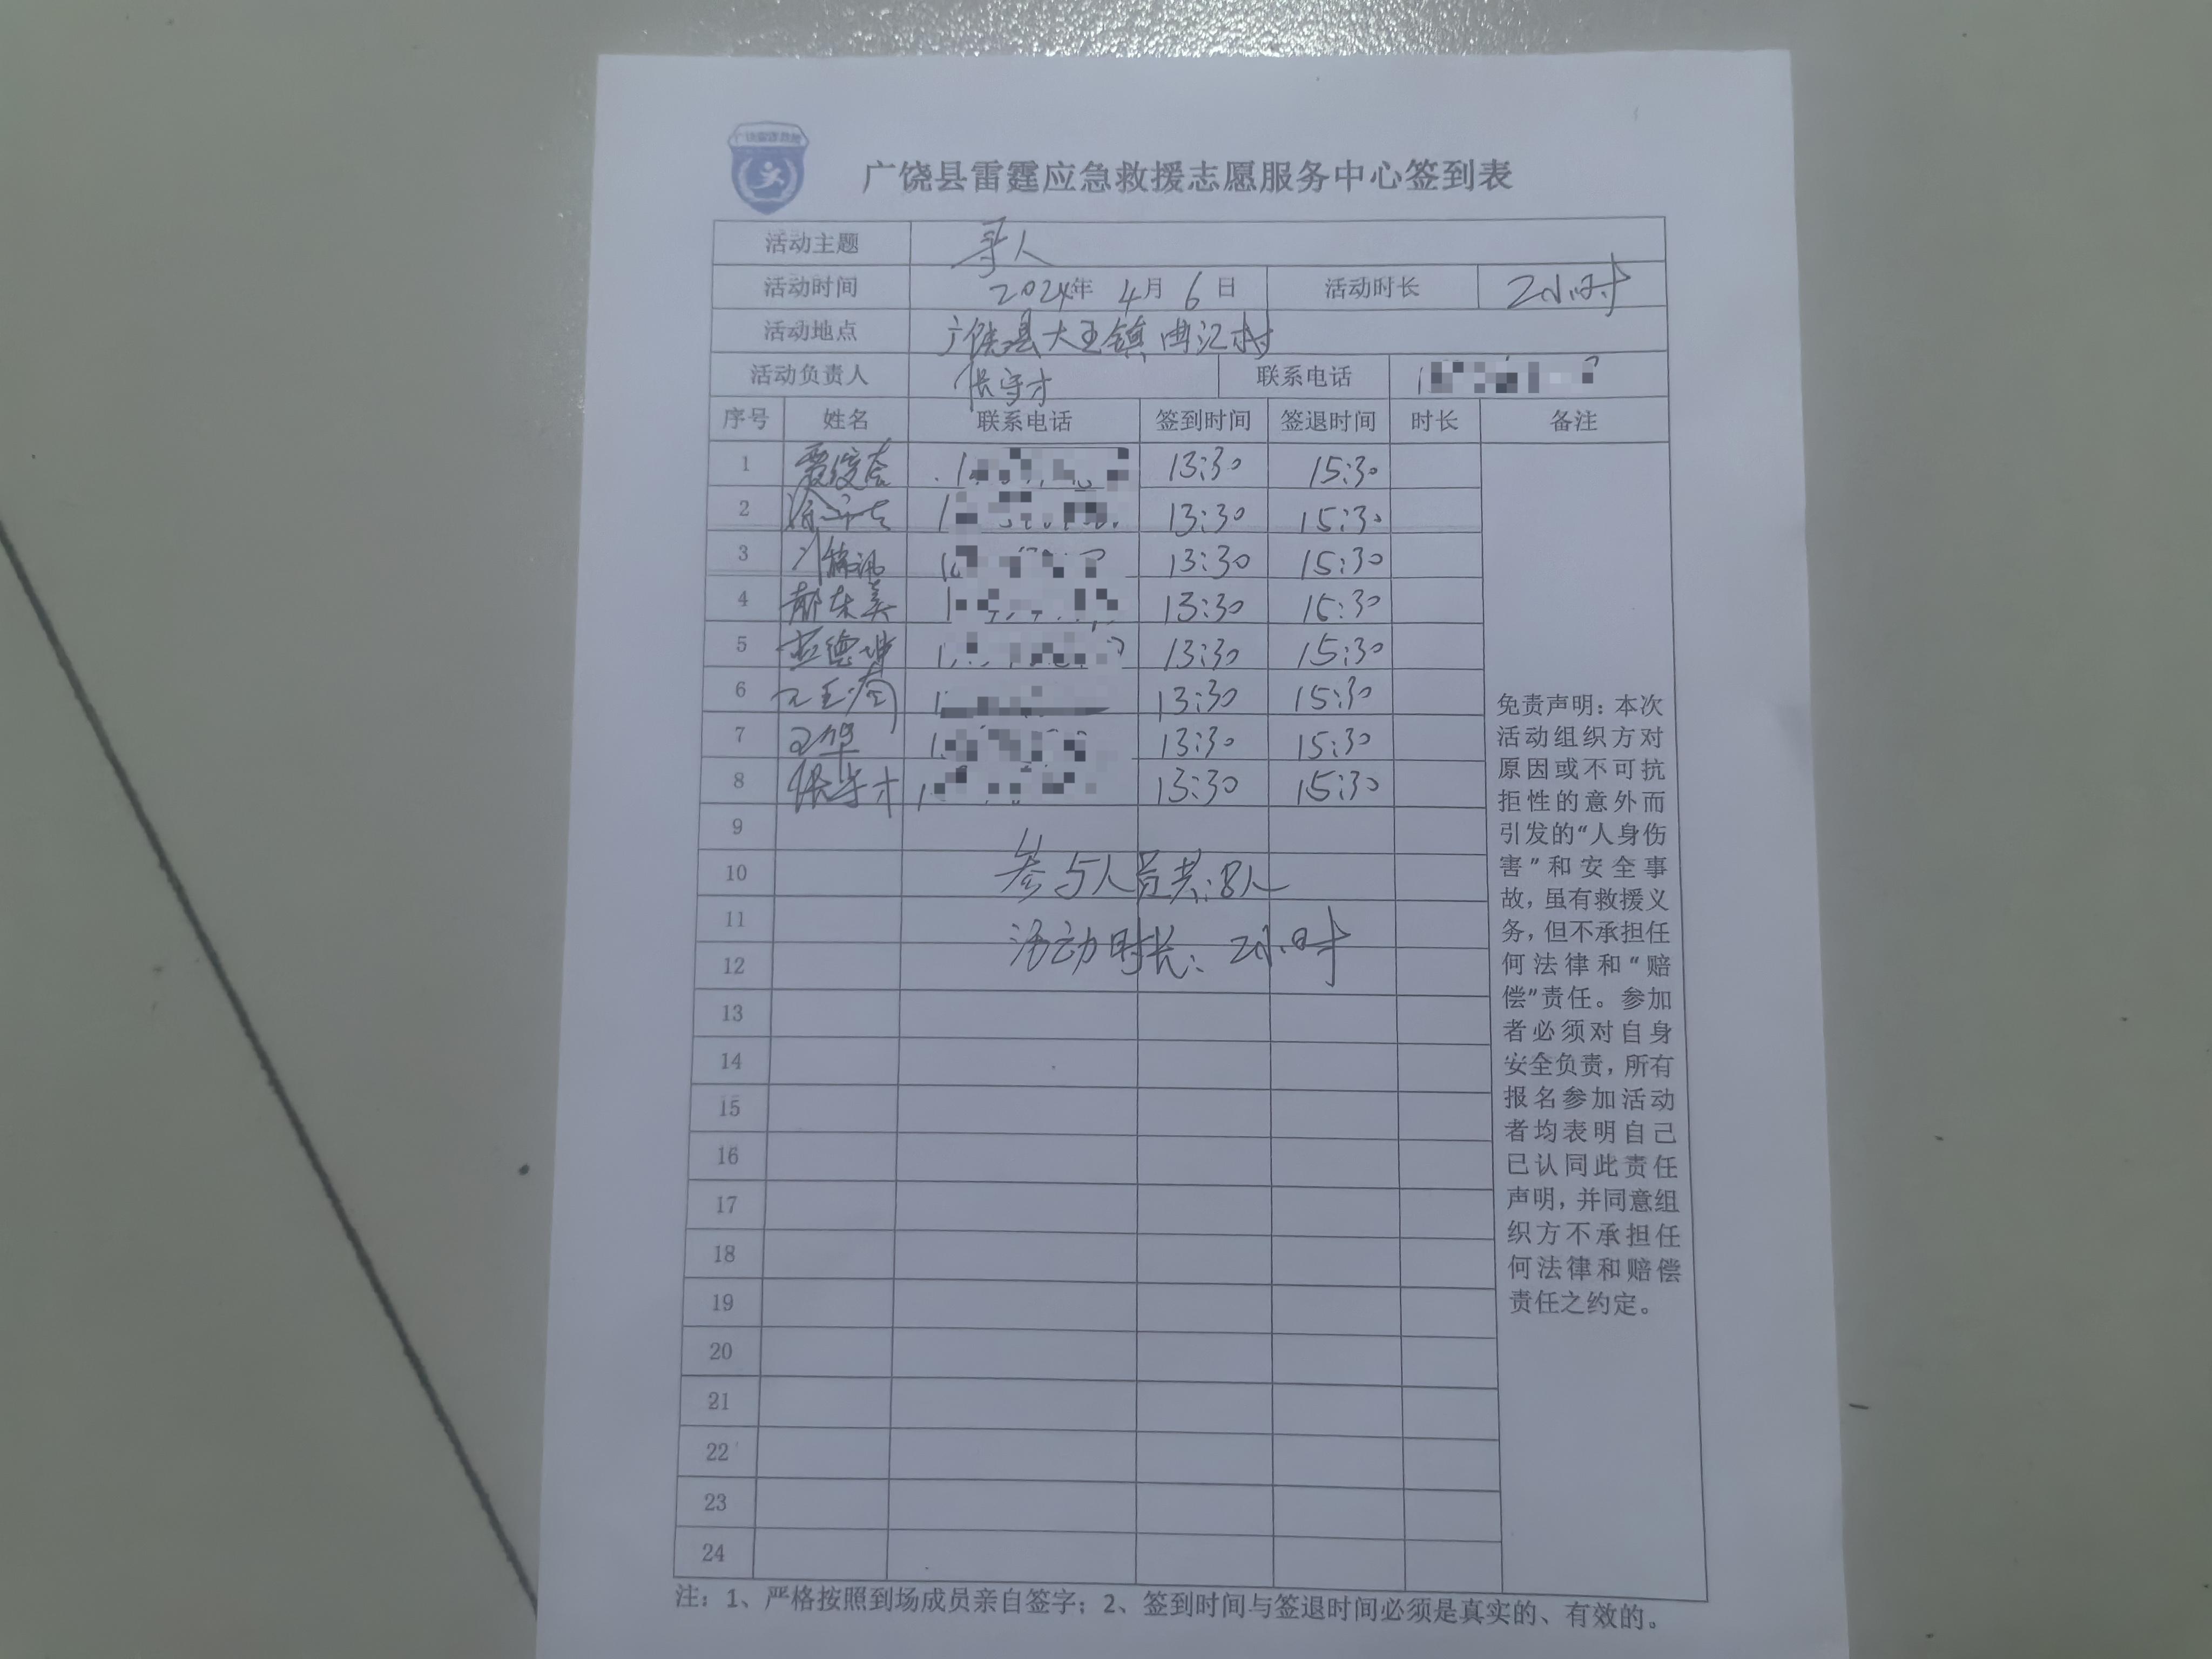 广饶县雷霆应急救援志愿服务中心签到表
活动主题 寻人
活动时间 2024年 4月 6日 活动时长 2小时
活动地点 广饶县大王镇曲江村
活动负责人 张守才 联系电话
序号 姓名 联系电话 签到时间 签退时间 时长 备注
1 13:30 15:30
2 13:30 15:30
3 13:30 15:30
4 13:30 15:30
5 13:30 15:30
6 13:30 15:30
7 王华 13:30 15:30
8 张守才 13:30 15:30
9
10 参与人员共:8人
11
12 活动时长: 2小时
13
14
15
16
17
18
19
20
21
22
23
24
免责声明：本次
活动组织方对
原因或不可抗
拒性的意外而
引发的“人身伤
害”和安全事
故，虽有救援义
务，但不承担任
何法律和“赔
偿”责任。参加
者必须对自身
安全负责，所有
报名参加活动
者均表明自己
已认同此责任
声明，并同意组
织方不承担任
何法律和赔偿
责任之约定。
注：1、严格按照到场成员亲自签字；2、签到时间与签退时间必须是真实的、有效的。